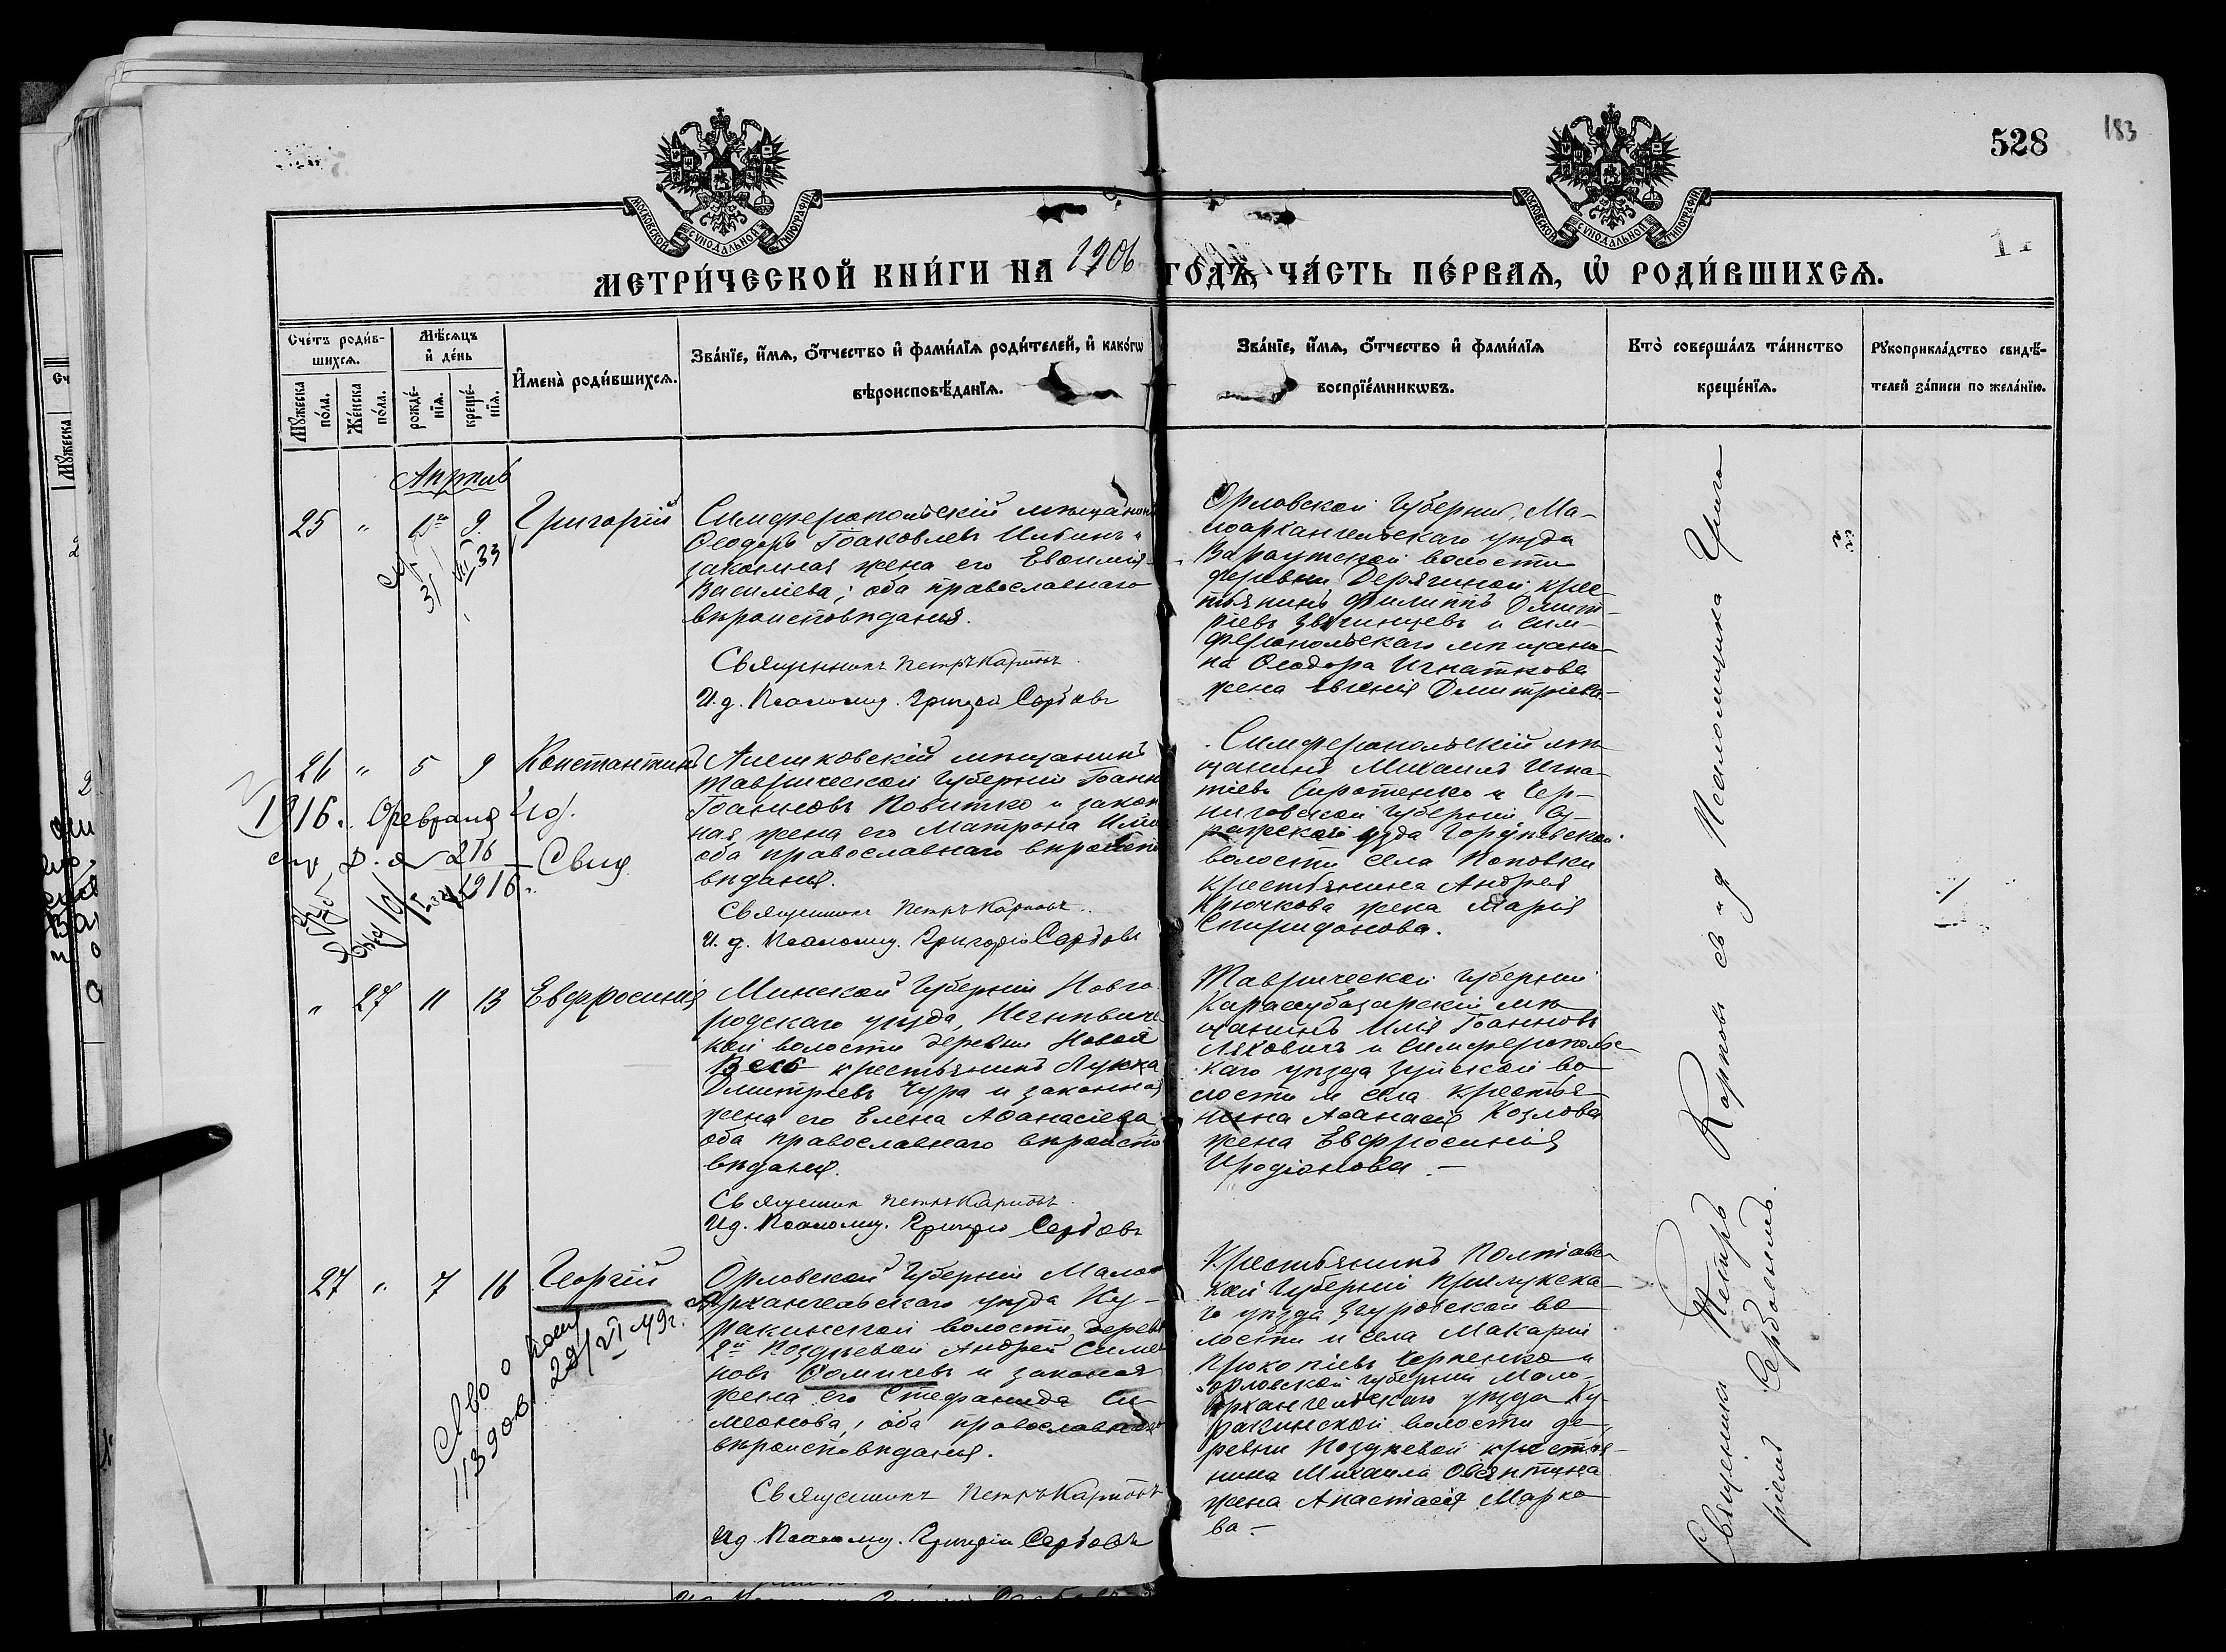 528
183
МОСКОВСКОЙ СѴНОДАЛЬНОЙ ТИПОГРАФІИ
МОСКОВСКОЙ СѴНОДАЛЬНОЙ ТИПОГРАФІИ
МЕТРИ́ЧЕСКОЙ КНИ́ГИ НА 1906 ГО́ДЪ, ЧА́СТЬ ПЕ́РВАЯ, Ѡ҆ РОДИ́ВШИХСЯ.
Сче́тъ роди́в-
шихся.
Мꙋжеска по́ла.
Же́нска по́ла.
Мѣ́сяцъ
и҆ де́нь
рожде́-
нїя.
креще́-
нїя.
И҆мена̀ роди́вшихся.
Зва́нїе, и҆́мя, ѻ҆́тчество и҆ фами́лїя роди́телей, и҆ како́гѡ
вѣроисповѣ́данїя.
Зва́нїе, и҆́мя, ѻ҆́тчество и҆ фами́лїя
воспрїе́мникѡвъ.
Кто̀ соверша́лъ та́инство
креще́нїя.
Рꙋкоприкла́дство свидѣ́-
телей за́писи по жела́нїю.
Апрѣль
25 " 9 Григорій
Симферопольскій мѣщанинъ
Ѳеодоръ Іоаковлевъ Ильинъ и
законная жена его Евѳимія
Василіева; оба православнаго
вѣроисповѣданія.
Священникъ Петръ Карповъ
И. д. Псаломщ. Григорій Сербовъ
Орловской губерніи, Ма-
лоархангельскаго уѣзда
волости
деревни Дерягиной крес-
тьянинъ Филиппъ Дмит-
ріевъ Звягинцевъ и Сим-
феропольскаго мѣщани-
на Ѳеодора Игнаткова
жена Евгенія Дмитріева.
26 " 5 9 Константинъ
Алешковскій мѣщанинъ
Таврической губерніи Іоаннъ
Іоанновъ Повитко и закон
ная жена его Матрона
оба православнаго вѣроиспо
вѣданія.
Священникъ Петръ Карповъ
И. д. Псаломщ. Григорій Сербовъ
Симферопольскій мѣ-
щанинъ Михаилъ Игна-
тіевъ Сиротенко и Чер-
ниговской губерніи Су-
ражскаго уѣзда
волости села Поповки
крестьянина Андрея
Крючкова жена Марія
Спиридонова.
1916. Февраля 10/.
216
Свид
1916
" 27 11 13 Евфросинія
Минской губерніи Новго
родскаго уѣзда,
кой волости деревни Новой
Весь крестьянинъ Лукка
Дмитріевъ Чура и законная
жена его Елена Аѳанасіева
оба православнаго вѣроиспо
вѣданія.
Священник Петръ Карповъ
И.д. Псаломщ. Григорій Сербовъ
Таврической губерніи
Карасубазарскій мѣ
щанинъ Илія Іоанновъ
Ляховичъ и Симферопольс-
каго уѣзда Зуйской во-
лости и села крестья-
нина Аѳанасія Козлова
жена Евфросинія
Иродіонова. —
27 " 7 16 Георгій
Орловской губерніи Мало
Архангельскаго уѣзда Ку-
ракинской волости дерев
2й Позднѣевой Андрей Симе
новъ Ѳомичевъ и законая
жена его Стефанида Си-
меонова, оба православнаго
вѣроисповѣданія.
Священникъ Петръ Карповъ
И.д. Псаломщ. Григорій Сербовъ
Крестьянинъ Полтавс
кой губерніи Прилукска-
го уѣзда Згуровской во-
лости и села Макарій
Прокопіевъ Черненко и
Орловской губерніи Мало-
Архангельскаго уѣзда Ку-
ракинской волости де-
ревни Позднѣевой крестья-
нина Михаила
жена Анастасія Марко-
ва. —
29/VI 49г.
Священникъ Петръ Карповъ съ и д Псаломщика Григо
ріемъ Сербовымъ.